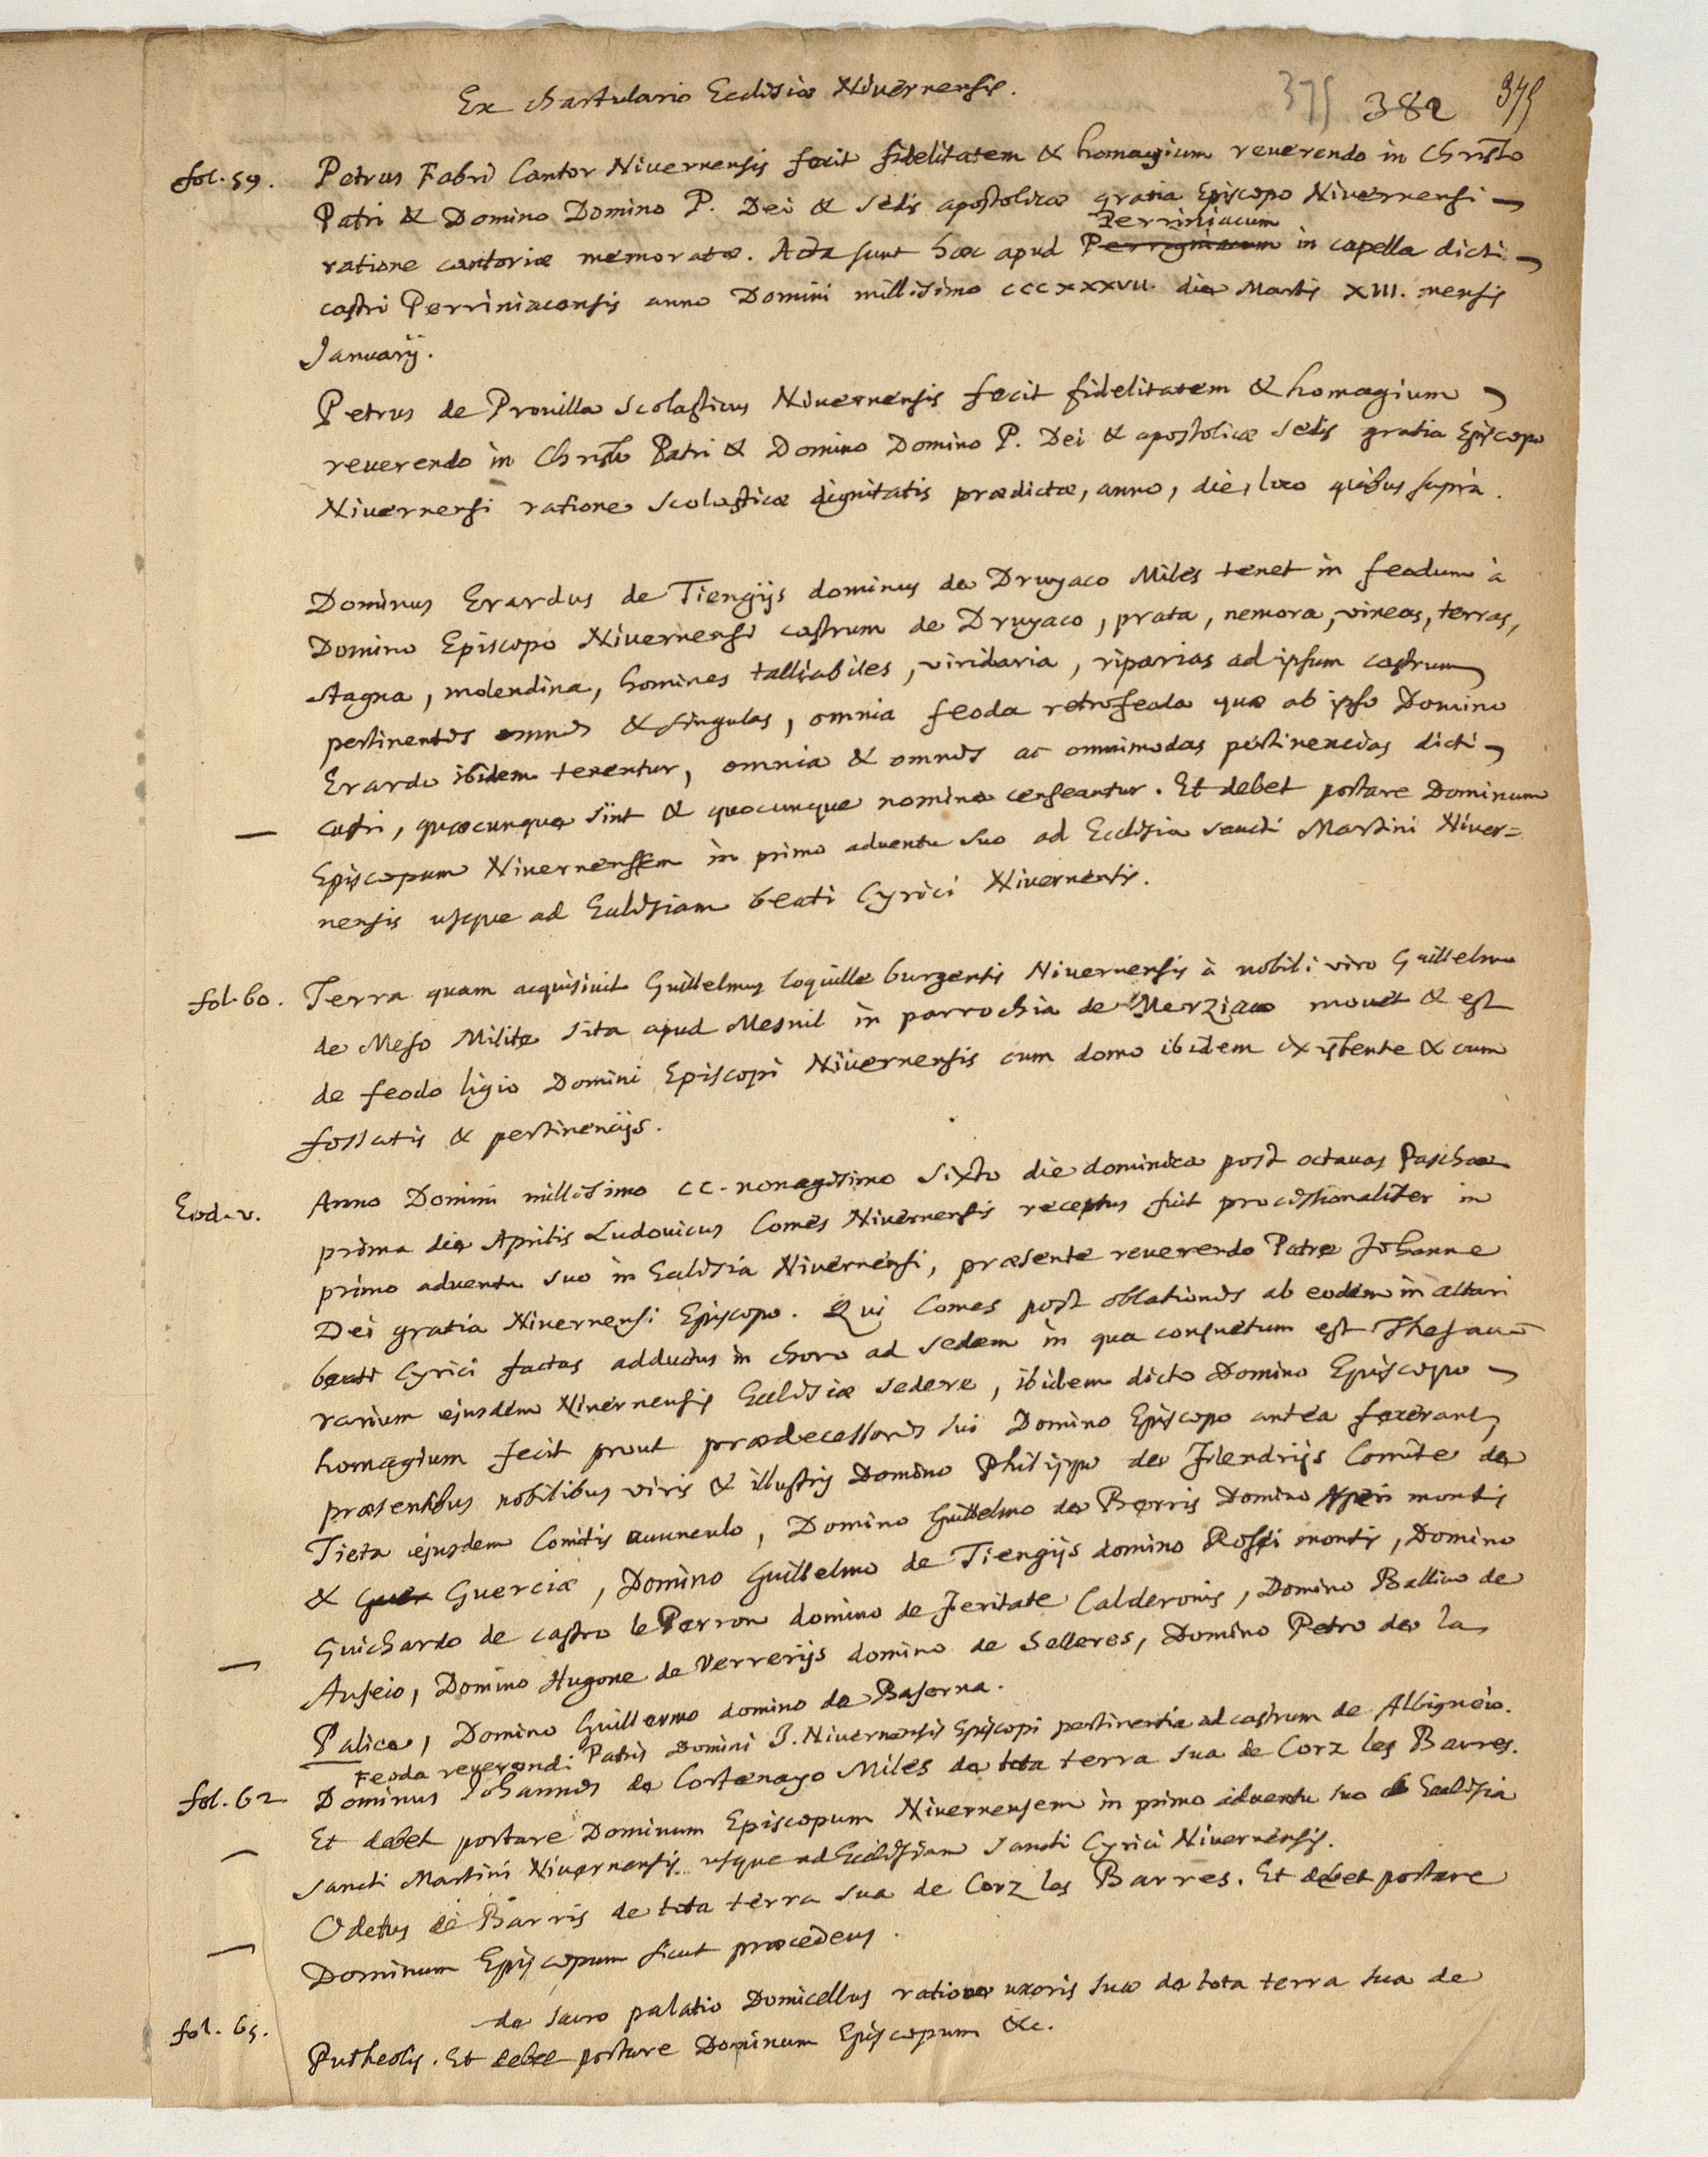 Ex chartulario Ecclesiæ Nivernensis.
375 382 375
fol. 59. Petrus Fabri Cantor Nivernensis fecit fidelitatem & homagium reuerendo in Christo
Patri & Domino Domino P. Dei & sedis apostolicæ gratia Episcopo Nivernensi
Perriniacum
ratione cantoriæ memoratæ. Acta sunt hæc apud Perrigniacum in capella dicti
castri Perriniacensis anno Domini millesimo CCCXXXVII. die Martis XIII. mensis
Januarij.
Petrus de Provilla Scolasticus Nivernensis fecit fidelitatem & homagium
reuerendo in Christo Patri & Domino Domino P. Dei & apostolicæ sedis gratia Episcopo
Nivernensi ratione Scolasticæ dignitatis prædictæ, anno, die, loco quibus suprà.
Dominus Erardus de Tiengijs dominus de Druyaco Miles tenet in feodum à
Domino Episcopo Nivernensi castrum de Druyaco, prata, nemora, vineas, terras,
stagna, molendina, homines talliabiles, viridaria, riparias ad ipsum castrum
pertinentes omnes & singulas, omnia feoda retrofeoda quæ ab ipso Domino
Erardo ibidem tenentur, omnia & omnes ac omnimodas pertinencias dicti
castri, quæcunque sint & quocunque nomine censeantur. Et debet portare Dominum
Episcopum Nivernensem in primo adventu suo ad Ecclesia sancti Martini Niver=
nensis usque ad Ecclesiam beati Cyrici Nivernensis.
fol. 60. Terra quam acquisivit Guillelmus Coquille burgensis Nivernensis à nobili viro Guillelmo
de Meso Milite sita apud Mesnil in parrochia de Merziaco movet & est
de feodo ligio Domini Episcopi Nivernensis cum domo ibidem existente & cum
fossatis & pertinencijs.
Eod. v. Anno Domini millesimo CC. nonagesimo sexto die dominica post octavas Paschæ
prima die Aprilis Ludovicus Comes Nivernensis receptus fuit processionaliter in
primo adventu suo in Ecclesia Nivernensi, præsente reuerendo Patre Johanne
Dei gratia Nivernensi Episcopo. Qui Comes post oblationes ab eodem in altari
beati Cyrici factas adductus in choro ad sedem in qua consuetum est Thesau=
rarium ejusdem Nivernensis Ecclesiæ sedere, ibidem dicto Domino Episcopo
homagium fecit prout prædecessores sui Domino Episcopo antea fecerant,
præsentibus nobilibus viris & illustris Domino Philippo de Flendrijs Comite de
Tieta ejusdem Comitis avunculo, Domino Guillelmo de Borris Domino Asperi montis
& Guer Guerciæ, Domino Guillelmo de Tiengijs domino Rossi montis, Domino
Guichardo de castro le Perron domino de Feritate Calderonis, Domino Ballivo de
Auseio, Domino Hugone de Verrerijs domino de Selleres, Domino Petro de la
Palice, Domino Guillermo domino de Baserna.
Feoda reuerendi Patris Domini J. Nivernensis Episcopi pertinentia ad castrum de Albigneio.
fol. 62. Dominus Johannes de Cortenayo Miles de tota terra sua de Corz les Barres.
Et debet portare Dominum Episcopum Nivernensem in primo adventu suo ab Ecclesia
sancti Martini Nivernensis usque ad Ecclesiam sancti Cyrici Nivernensis.
Odetus de Barris de tota terra sua de Corz les Barres. Et debet portare
Dominum Episcopum sicut præcedens.
fol. 65. de sacro palatio Domicellus ratione uxoris suæ de tota terra sua de
Putheolis. Et debet portare Dominum Episcopum &c.